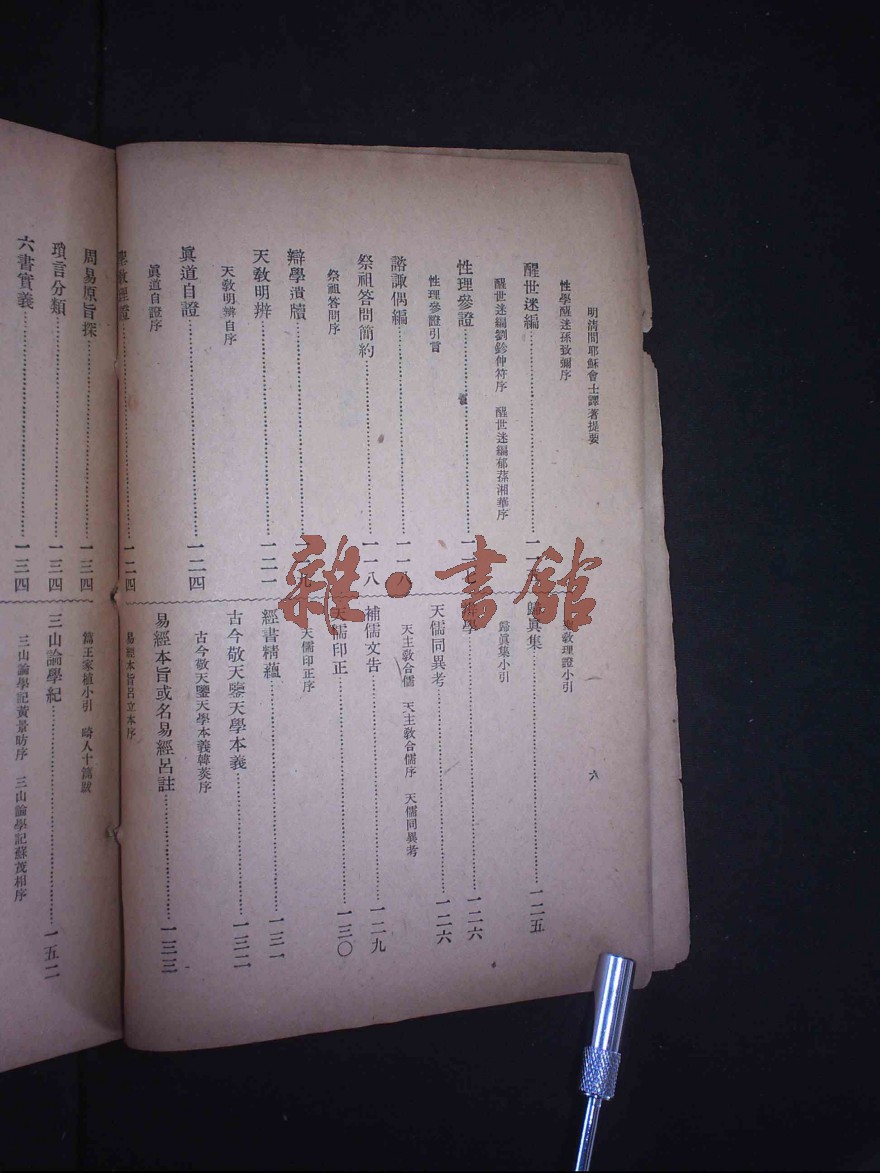 明清間耶穌會士譯著提要
六
性學醒迷孫致彌序
醒世迷編
醒世迷編劉鈐仲符序 醒世迷編郁葆湘華序
性理參證
性理參證引言
諮諏偶編……一一八
祭祖答問簡約……一一八
祭祖答問序
辯學潰牘
天敎明辨……一二一
天敎明辨自序
眞道自證……一二四
眞道自證序
聖敎理證……一二四
聖敎理證小引
歸眞集……一二五
歸眞集小引
辨學……一二六
天儒同異考……一二六
天主敎合儒 天主敎合儒序 天儒同異考
補儒文告……一二九
天儒印正……一三〇
天儒印正序
經書精蘊……一三一
古今敬天鑒天學本義……一三二
古今敬天鑒天學本義韓菼序
易經本旨或名易經呂註……一三三
易經本旨呂立本序
周易原旨探……一三四
瑣言分類……一三四
六書實義……一三四
篇王家植小引 畸人十篇跋
三山論學紀……一五二
三山論學記黃景昉序 三山論學記蘇茂相序
雜·書館